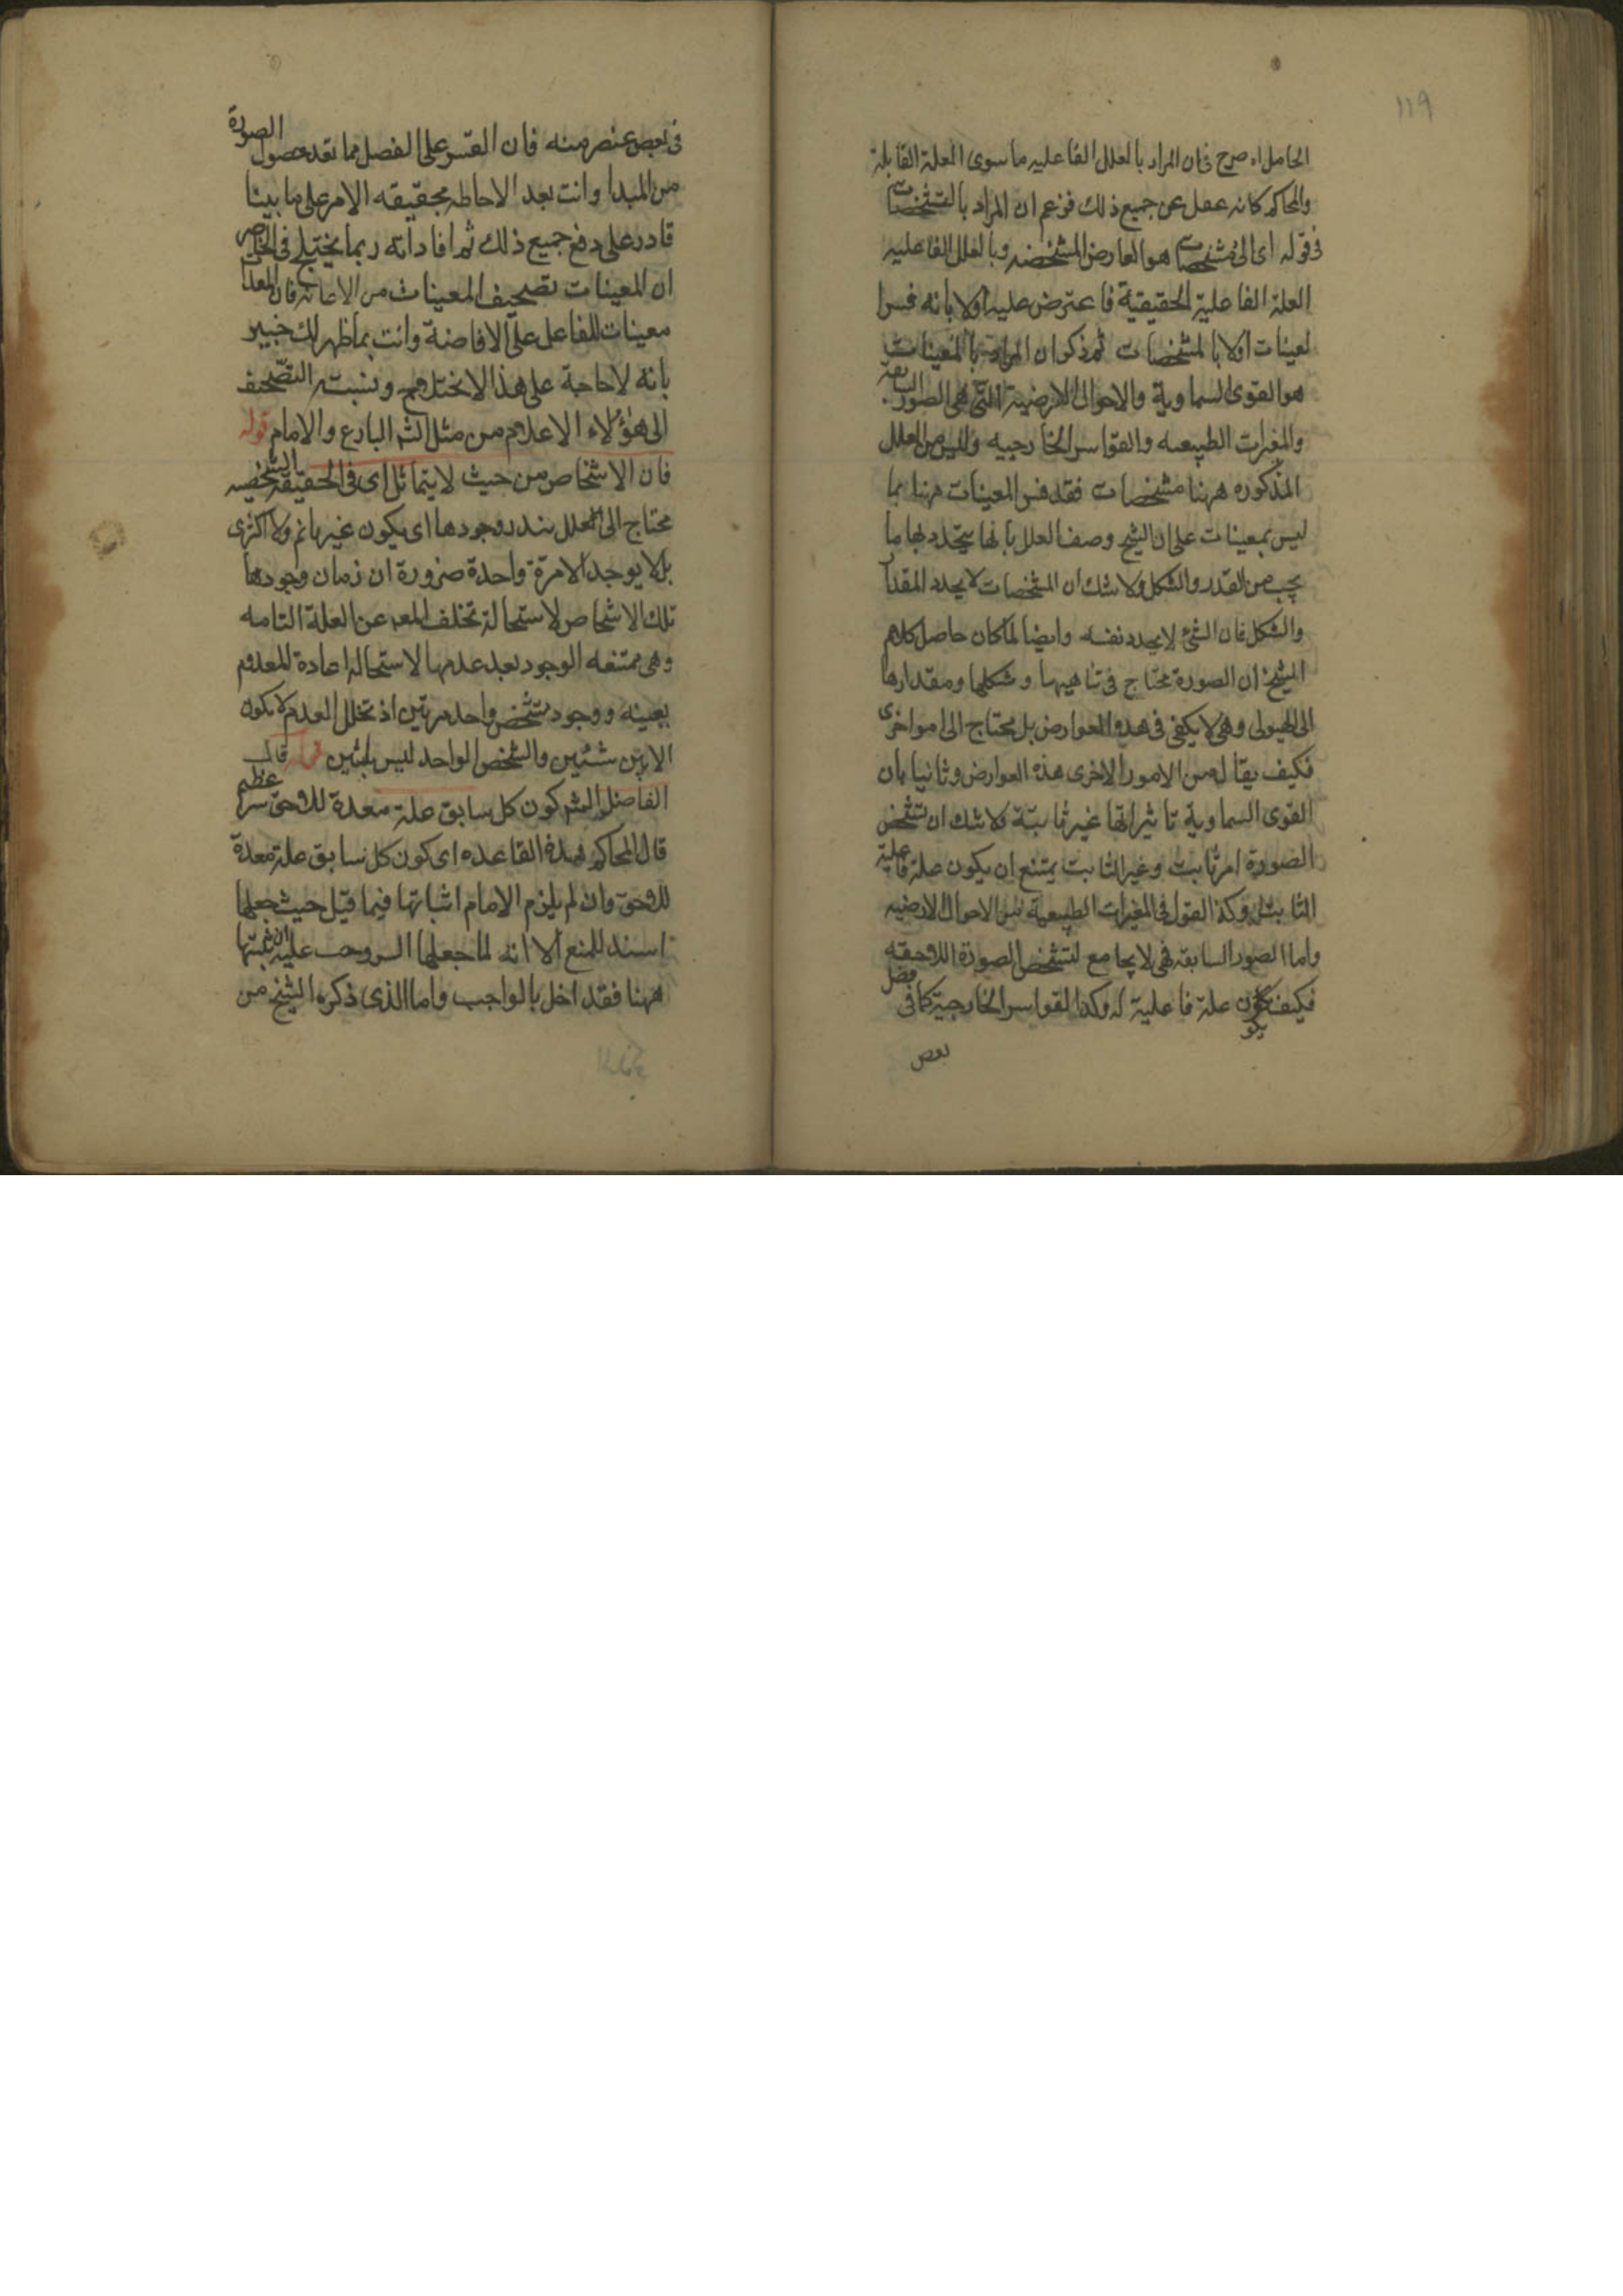 ١١٩
الحامل اه صرح فان المراد بالعلل الفاعليه ما سوى العلة القابلة
والمحاكم كانه غفل عن جميع ذلك فزعم ان المراد بالمشخصات
فى قوله اى الى مشخصات هو العارض المشخصه وبالعلل الفاعليه
العلة الفاعلية الحقيقية فاعترض عليه اولا بانه فسر
لمعينات اولا بالمشخصات ثم ذكر ان المراد بالمعينات
هو القوى السماوية والاحوال الارضية التى هى الصور السابقة
والمغيرات الطبيعيه والقواسر الخارجيه وليس من العلل
المذكوره ههنا مشخصات فقد فسر المعينات ههنا بما
ليس بمعينات على ان الشيخ وصف العلل بانها يتحدد بها ما
يجب من القدر والشكل ولا شك ان المشخصات لا يحدد المقدار
والشكل فان الشئ لا يحدد نفسه وايضا لما كان حاصل كلام
الشيخ ان الصورة محتاج فى تناهيها وشكلها ومقدارها
الى الهيولى وهى لا يكفى فى هذه العوارض بل محتاج الى امور اخرى
فكيف يقال من الامور الاخرى هذه العوارض وثانيا بان
القوى السماوية تاثيراتها غير ثابتة لا شك ان تشخص
الصورة امر ثابت وغير الثابت يمتنع ان يكون علة فاعلية
الثابت وكذا القول فى المغيرات الطبيعية من الاحوال الارضيه
واما الصور السابقه فهى لا يجامع لتشخص الصورة اللاحقه
فكيف يكون علة فاعلية له وكذا القواسر الخارجية كما فى فصل
بعض
فى بعض عنصر منه فان القسر على الفصل مما تعد حصول الصورة
من المبدا وانت بعد الاحاطه بحقيقه الامر على ما بينا
قادر على دفع جميع ذلك ثم افاد انه ربما يختلج فى الخاطر
ان المعينات تصحيف المعينات من الاعانة فان العلل
معينات للفاعل على الافاضة وانت بما ظهر لك خبير
بانه لا حاجة على هذا الاختلاج ونسبة التصحيف
الى هؤلاء الاعلام من مثل الشم البارع والامام قوله
فان الاشخاص من حيث لا يتماثل اى فى الحقيقة الشخصيه
محتاج الى العلل يندر وجودها اى يكون غير دائم ولا اكثرى
بل لا يوجد الا مرة واحدة ضرورة ان زمان وجودها
تلك الاشخاص لاستحالة تخلف المعلول عن العلة التامه
وهى ممتنعه الوجود بعد عدمها لاستحاله اعادة المعدوم
بعينه ووجود شخص واحد مرتين اذ تخلل العدم لا يكون
الا بين شيئين والشخص الواحد ليس باثنين قوله قال
الفاضل الشم كون كل سابق علة معدة للاحق سر عظيم
قال المحاكم هذه القاعده اى كون كل سابق علة معدة
للاحق وان لم يلزم الامام اثباتها فيما قيل حيث جعلها
سندا للمنع الا انه لما جعلها السر وجب عليه ان يثبتها
ههنا فقد اخل بالواجب واما الذى ذكره الشيخ من